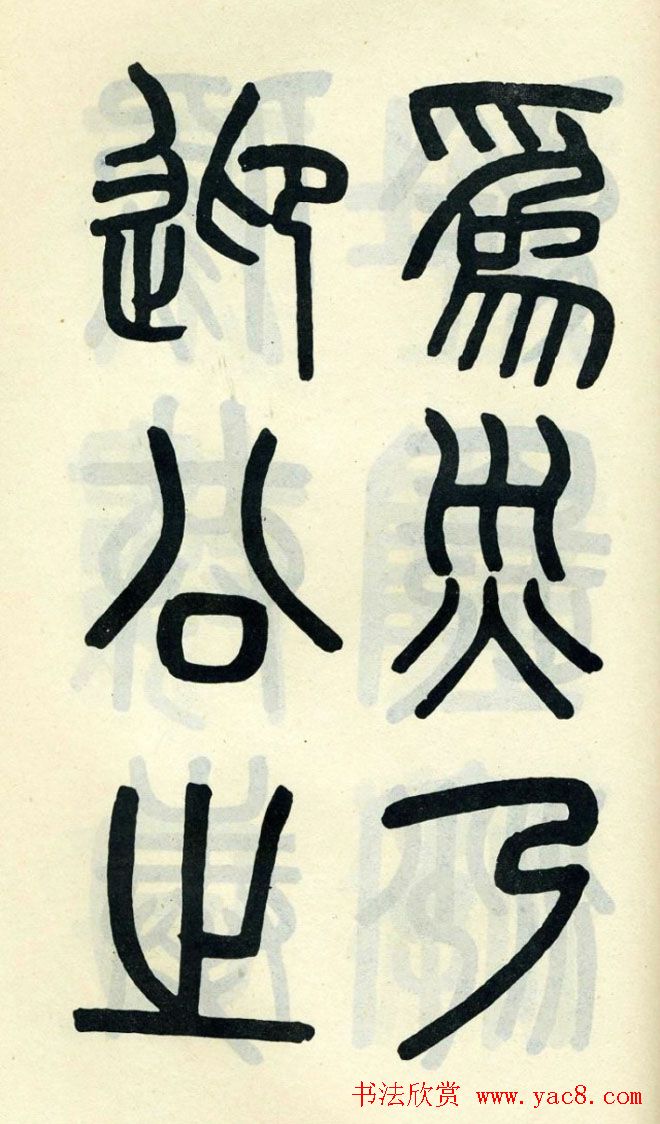 爲災乃
迎公之
书法欣赏 www.yac8.com